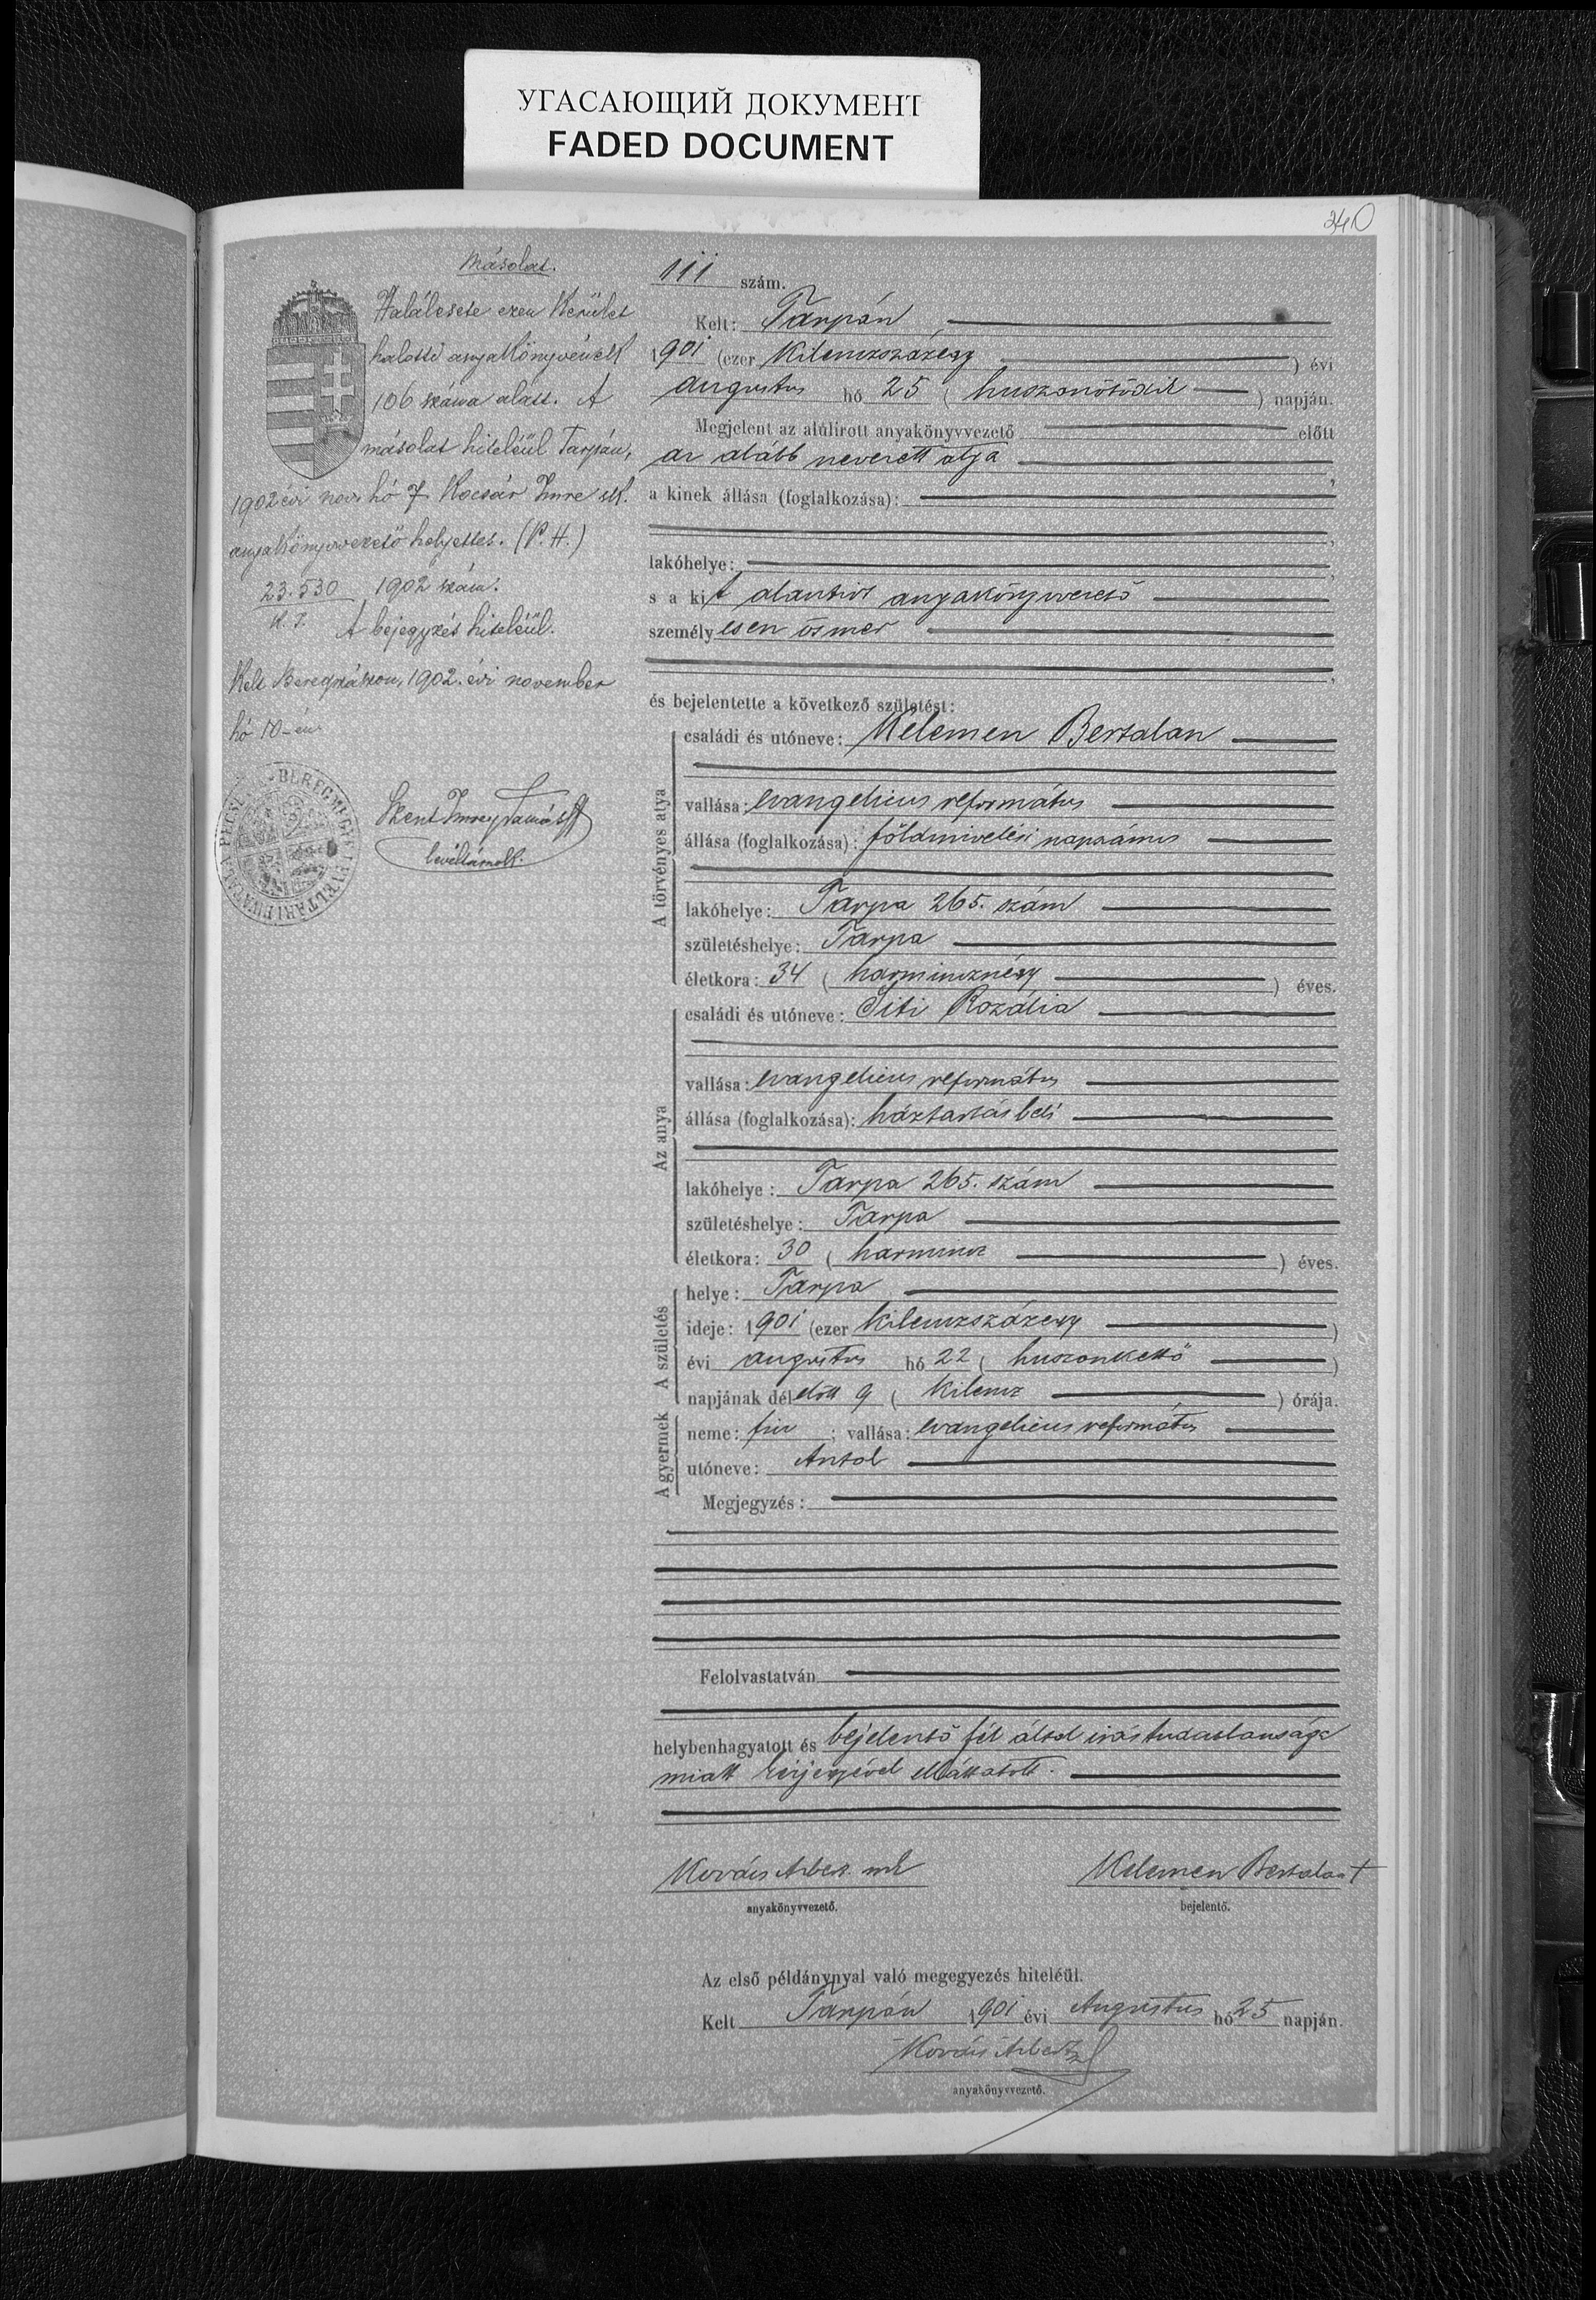 УГАСАЮЩИЙ ДОКУМЕНТ
FADED DOCUMENT
240
Másolat.
Halálesete ezen kerület
halotti anyakönyvének
106 száma alatt. A
másolat hiteléül Tarpán,
1902 évi nov. hó 7. Kocsár Imre sk.
anyakönyvvezető helyettes. (P. H.)
23.530 1902 szám.
A bejegyzés hiteléül.
Kelt Beregszászon, 1902. évi november
hó 10-én
Szent Imrey Tamás
levéltárnok.
111 szám.
Kelt: Tarpán
1901 (ezer kilenczszázegy) évi
augustus hó 25 (huszonötödik) napján.
Megjelent az alúlirott anyakönyvvezető előtt
az alább nevezett atya
a kinek állása (foglalkozása):
lakóhelye:
s a kit alantirt anyakönyvvezető
személyesen ösmer
és bejelentette a következő születést:
A törvényes atya
családi és utóneve: Kelemen Bertalan
vallása: evangelicus református
állása (foglalkozása): földmivelési napszámos
lakóhelye: Tarpa 265. szám
születéshelye: Tarpa
életkora: 34 (harmincznégy) éves.
Az anya
családi és utóneve: Siti Rozália
vallása: evangelicus református
állása (foglalkozása): háztartásbeli
lakóhelye: Tarpa 265. szám
születéshelye: Tarpa
életkora: 30 (harmincz) éves.
A születés
helye: Tarpa
ideje: 1901 (ezer kilenczszázegy)
évi augustus hó 22 (huszonkettő)
napjának délelőtt 9 (kilencz) órája.
A gyermek
neme: fiu; vallása: evangelicus református
utóneve: Antal
Megjegyzés:
Felolvastatván
helybenhagyatott és bejelentő fél által irástudatlansága
miatt kézjegyével elláttatott.
Kovács Albert mk
Kelemen Bertalan +
anyakönyvvezető.
bejelentő.
Az első példánynyal való megegyezés hiteléül.
Kelt Tarpán 1901 évi Augustus hó 25 napján.
Kovács Albert
anyakönyvvezető.